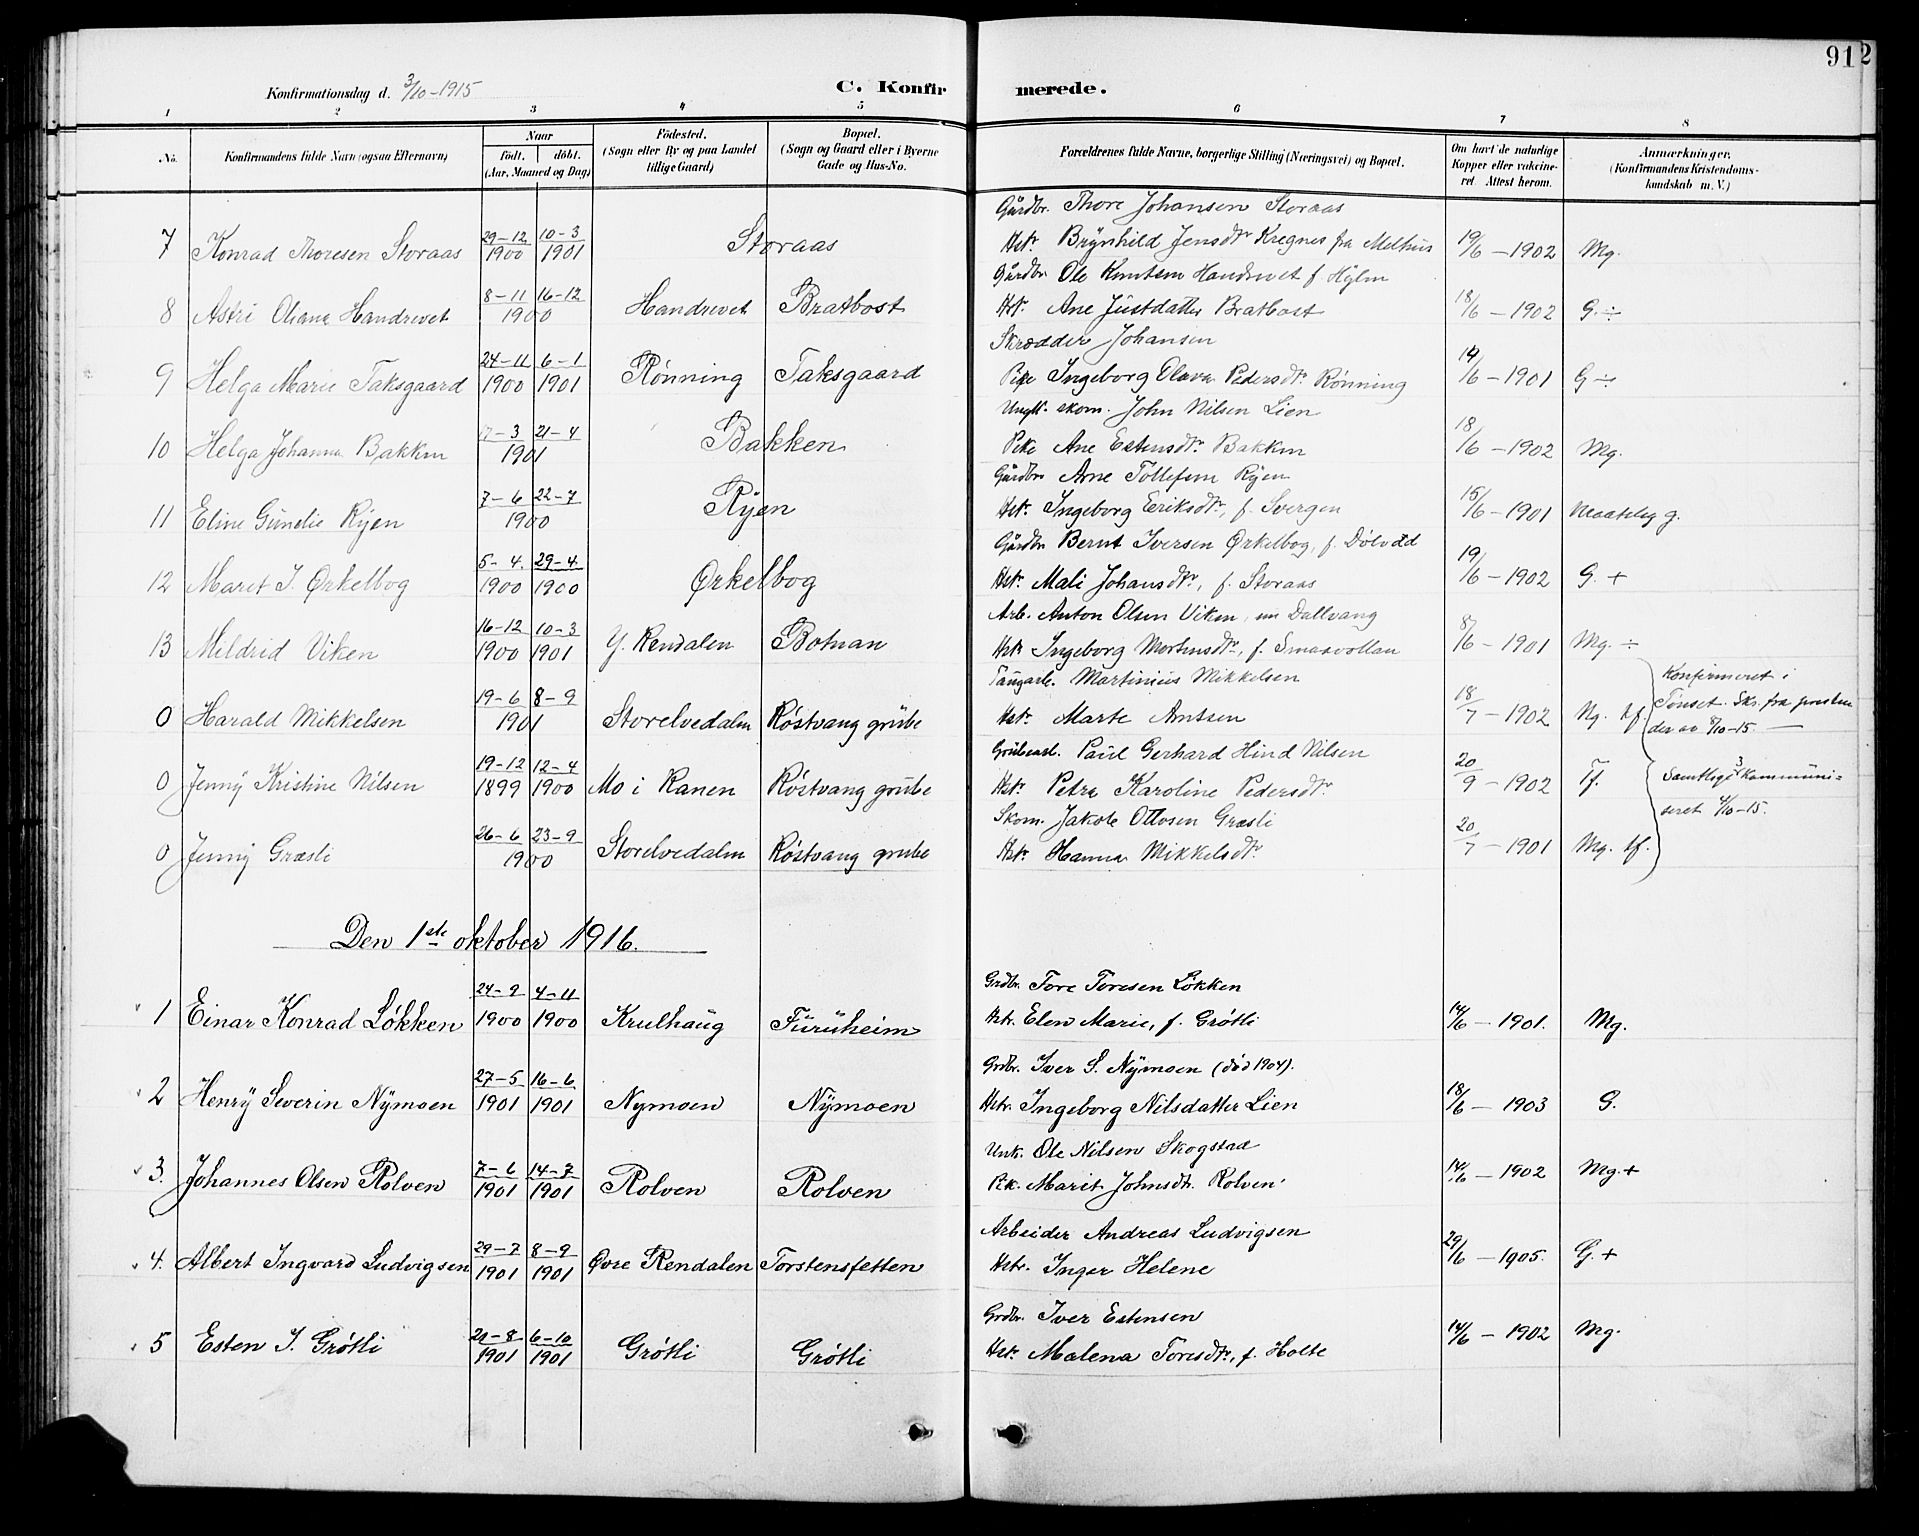 912
Konfirmationsdag d. 3/10-1915
C. Konfirmerede.
1 2 3 4 5 6 7 8
No. Konfirmandens fulde Navn (ogsaa Efternavn) Naar født. døbt. (Aar, Maaned og Dag) Fødested. (Sogn eller By og paa Landet tillige Gaard) Bopæl. (Sogn og Gaard eller i Byerne Gade og Hus-No. Forældrenes fulde Navne, borgerlige Stilling (Næringsvei) og Bopæl. Om havt de naturlige Kopper eller vakcineret. Attest herom. Anmærkninger. (Konfirmandens Kristendomskundskab m. V.)
Gårdbr. Thore Johansen Storaas
7 Konrad Thoresen Storaas 29-12 1900 10-3 1901 Storaas Hst. Brynhild Jensdtr Kregnes fra Melhus 19/6 - 1902 Mg.
Gårdbr Ole Knutsen Handrevet f Hylm
8 Astri Oliana Handrevet 8-11 16-12 1900 Handrevet Bratbost Hst. Ane Justdatter Bratbost 18/6 - 1902 G. ÷
Skrædder Johansen
9 Helga Marie Taksgaard 24-11 1900 6-1 1901 Rønning Taksgaard Pike Ingeborg Olava Pedersdtr. Rønning 14/6 - 1901 G ÷
Ungk. skom. John Nilsen Lien
10 Helga Johanna Bakken 17-3 21-4 1901 Bakken Pike Ane Estensdtr. Bakken 18/6 - 1902 Mg.
Gårdbr Arne Tollefsen Ryen
11 Eline Gunelie Ryen 7-6 22-7 1900 Ryen Hst. Ingeborg Eriksdtr, f. Svergen 15/6 - 1901 Maatelig g.
Gårdbr Bernt Iversen Ørkelbog, f. Dølvad
12 Maret I. Ørkelbog 5-4. 1900 29-4. 1900 Ørkelbog Hst. Mali Johansdtr, f. Storaas 19/6 - 1902 G. +
Arb. Anton Olsen Viken, nu Dallvang
13 Mildrid Viken 16-12 1900 10-3 1901 Y. Rendalen Botnan Hst Ingeborg Mortensdtr, f. Smaavollan 8/6 - 1901 Mg. ÷
Martinius Mikkelsen
0 Harald Mikkelsen 19-6 8-9 1901 Storelvedalen Røstvang grube Hst. Marte Antsen 18/7 - 1902 Ng. tf
Konfirmeret i
Tønset. Skr. fra presten
der av 8/10-15.
Grubearb. Paul Gerhard Hind Nilsen
0 Jenny Kristine Nilsen 19-12 1899 12-4 1900 Mo i Ranen Røstvang grube Hst. Petra Karoline Pedersdtr. 20/9 - 1902 Tf.
Samtlige 3 kommuniseret 4/10-15.
Skom. Jakob Ottosen Græsli
0 Jenny Græsli 26-6 23-9 1900 Storelvedalen Røstvang grube Hst. Hanna Mikkelsdtr. 20/7 - 1901 Mg. tf.
Den 1ste oktober 1916.
Grdbr. Tore Toresen Løkken
1 Einar Konrad Løkken 24-9 1900 4-11 1900 Krulhaug Furuheim Hst. Elen Marie, f. Grøtli 14/6 - 1901. Mg.
Grdbr. Iver S. Nymoen (død 1904).
2 Henry Severin Nymoen 27-5 1901 16-6 1901 Nymoen Nymoen Hstr. Ingeborg Nilsdatter Lien 18/6 - 1903 G.
Unk. Ole Nilsen Skogstad
3. Johannes Olsen Rolven 7-6 1901 14-7 1901 Rolven Rolven Pik. Marit Johnsdtr. Rolven 14/6 - 1902 Mg. +
Arbeider Andreas Ludvigsen
4. Albert Ingvard Ludvigsen 29-7 1901 8-9 1901 Øvre Rendalen Torstensfetten Hstr. Inger Helene 29/6 - 1905. G. +
Grdbr. Iver Estensen
5 Esten I. Grøtli 21-8 1901 6-10 1901 Grøtli Grøtli Hst. Malena Toresdtr, f. Holte 14/6 - 1902 Mg.